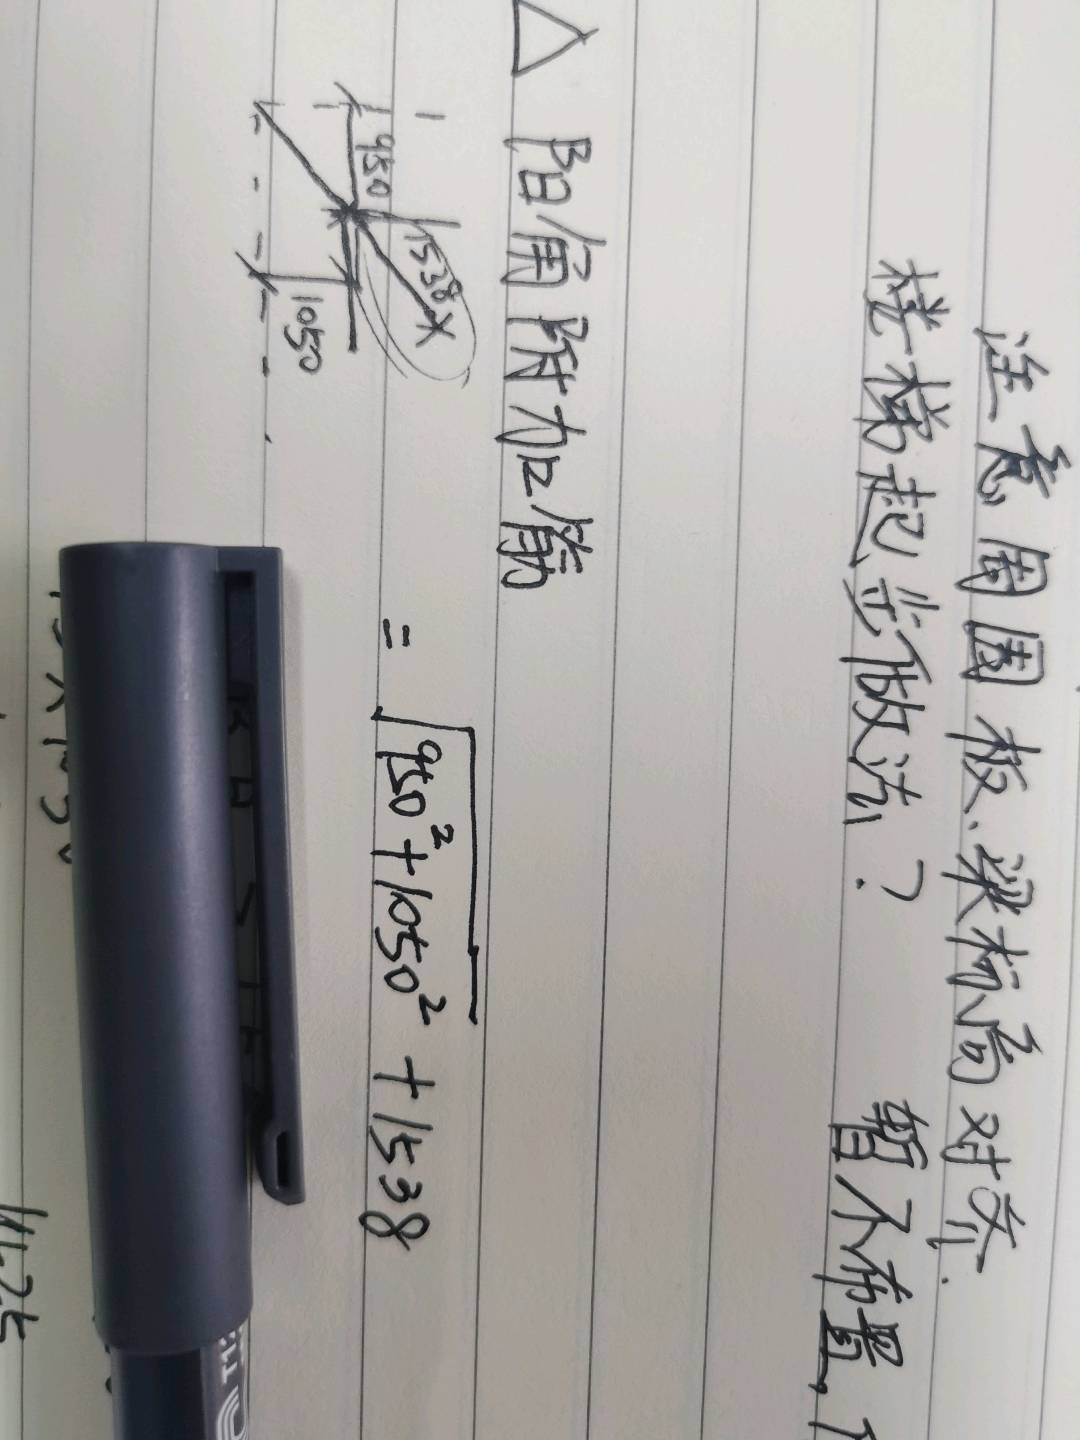 注意周围板、梁标高对齐.
楼梯起步做法? 暂不布置,
△ 阳角附加筋
950
1538
1050
= √950²+1050² + 1538